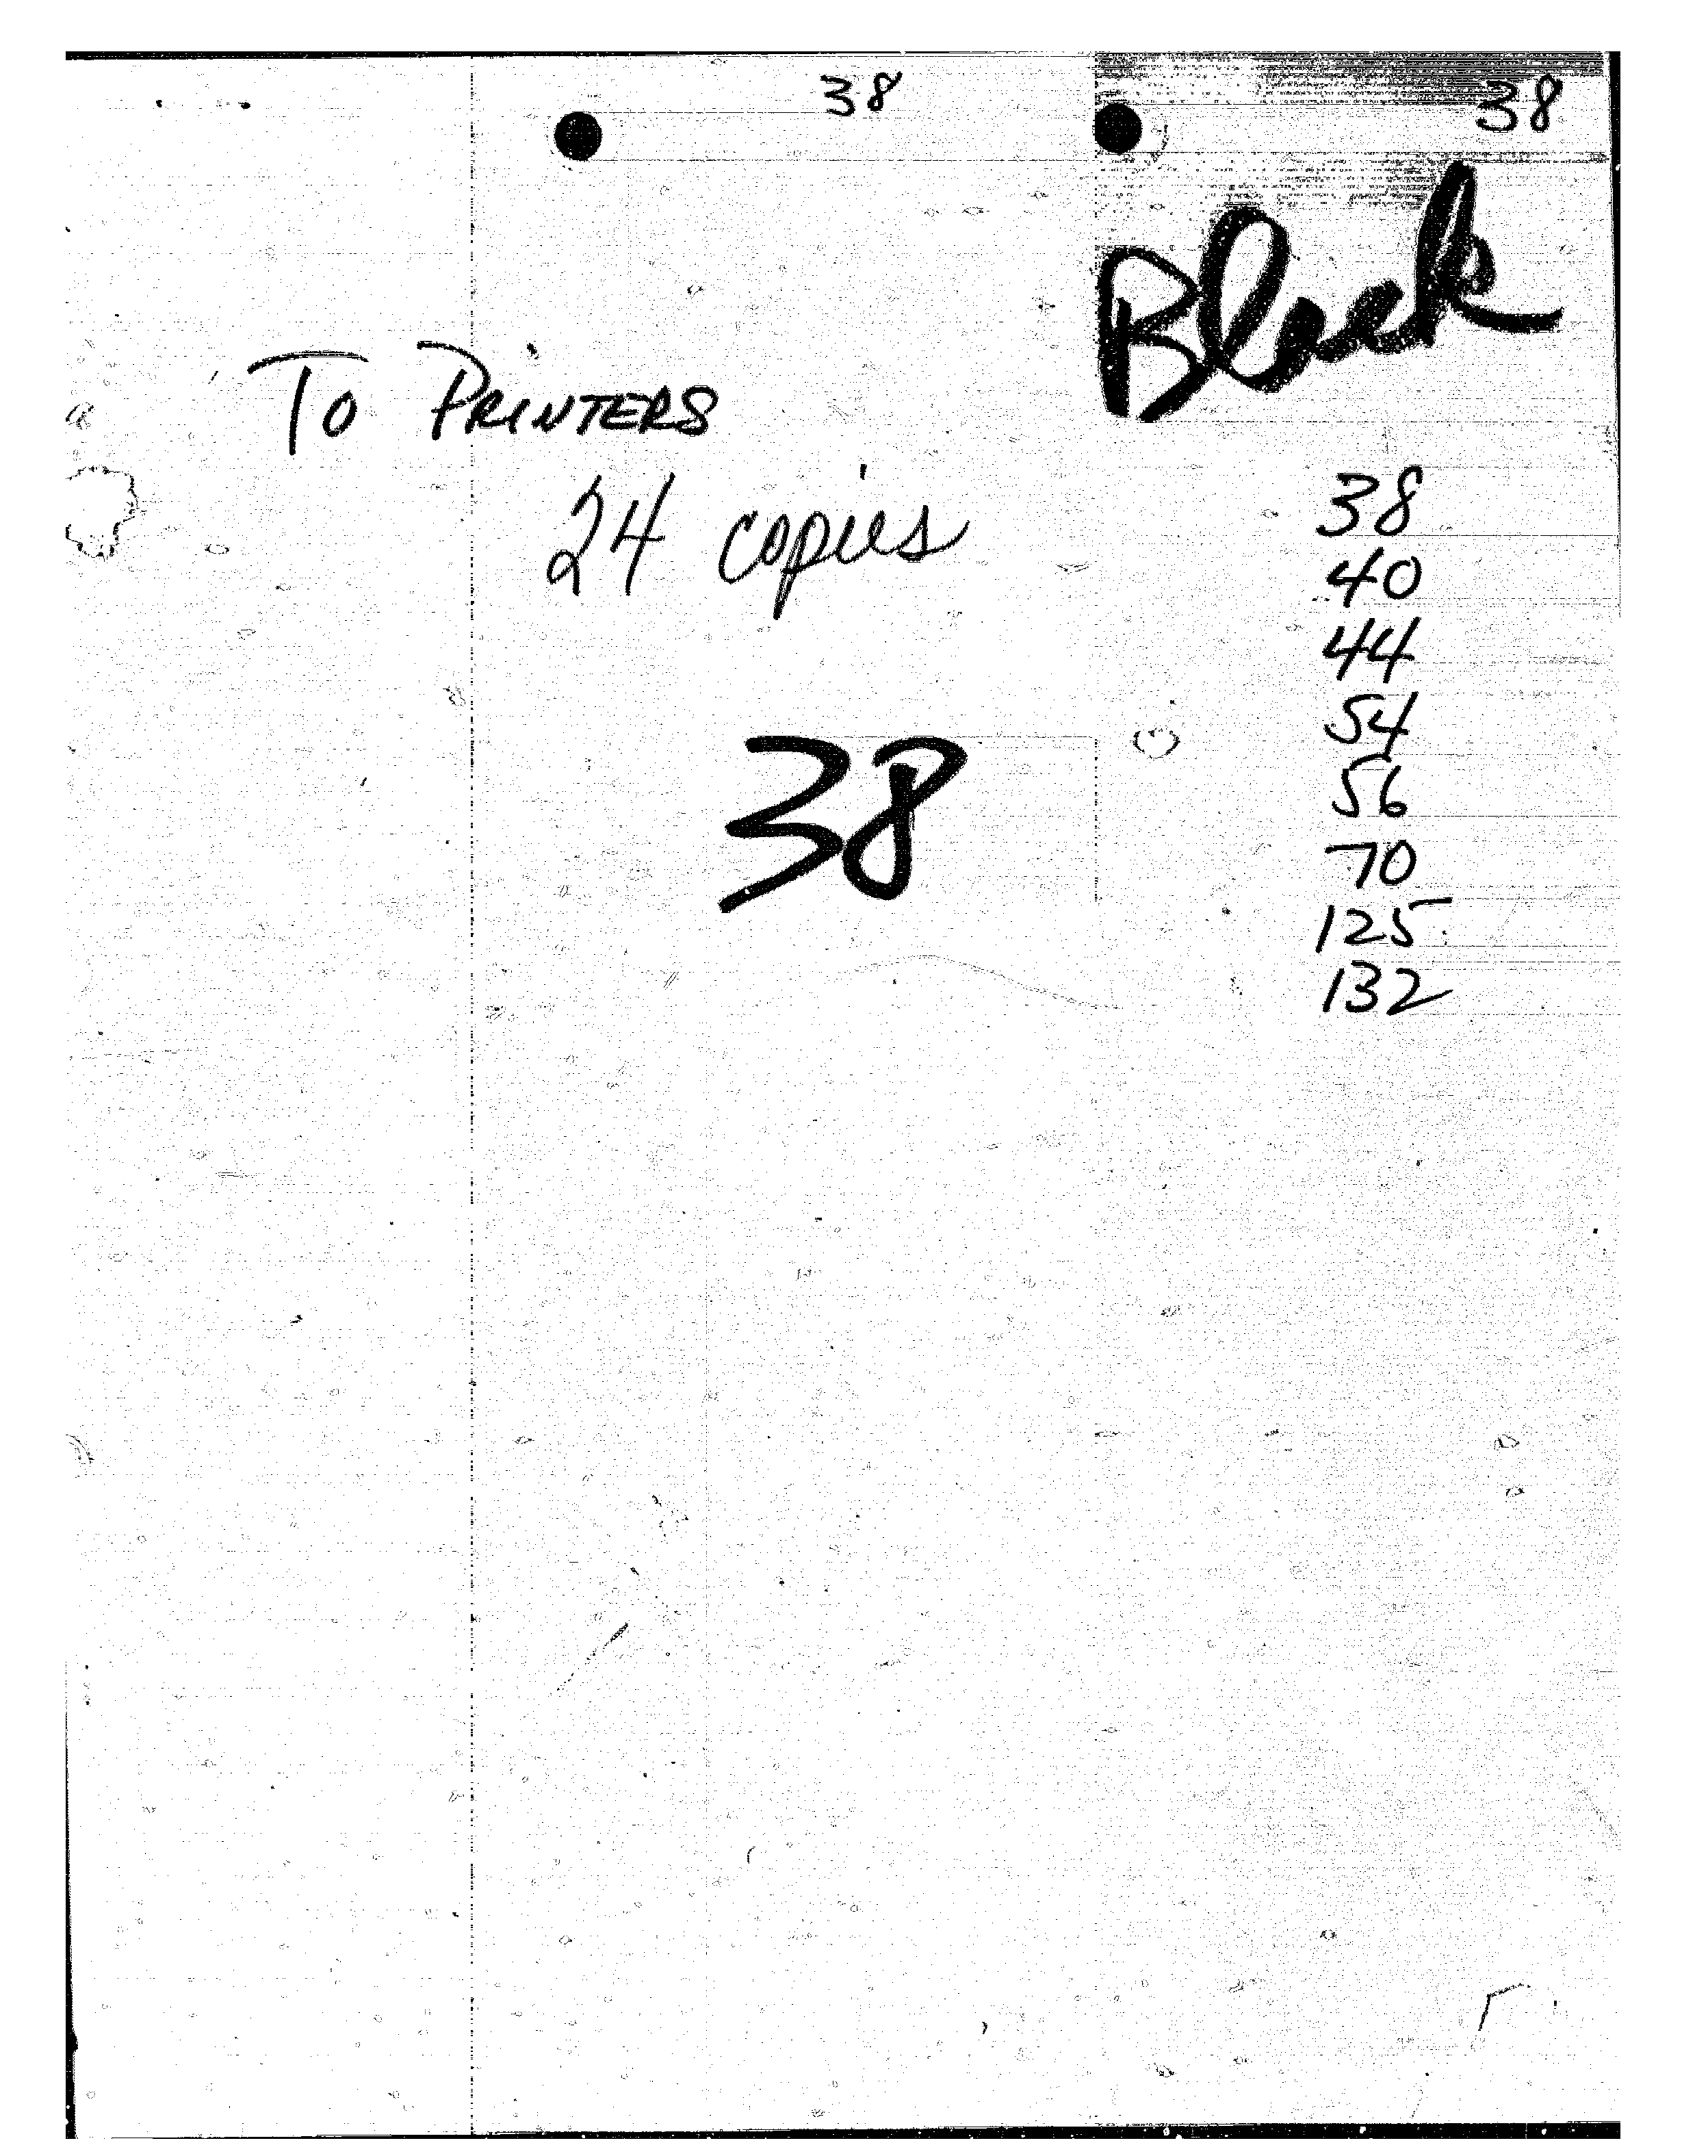 38
38
Black
To PRINTERS
24 copies
38
38
40
44
54
56
70
125
132